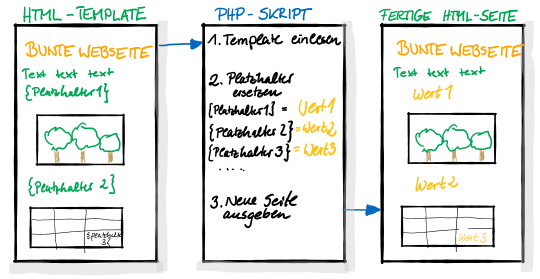 HTML-TEMPLATE
BUNTE WEBSEITE
Text text text
{Platzhalter1}
{Platzhalter 2}
{Platzhalter
3}
PHP-SKRIPT
1. Template einlesen
2. Platzhalter
ersetzen
{Platzhalter1} = Wert1
{Platzhalter 2} = Wert2
{Platzhalter 3} = Wert3
.....
3. Neue Seite
ausgeben
FERTIGE HTML-SEITE
BUNTE WEBSEITE
Text text text
Wert 1
Wert2
Wert3